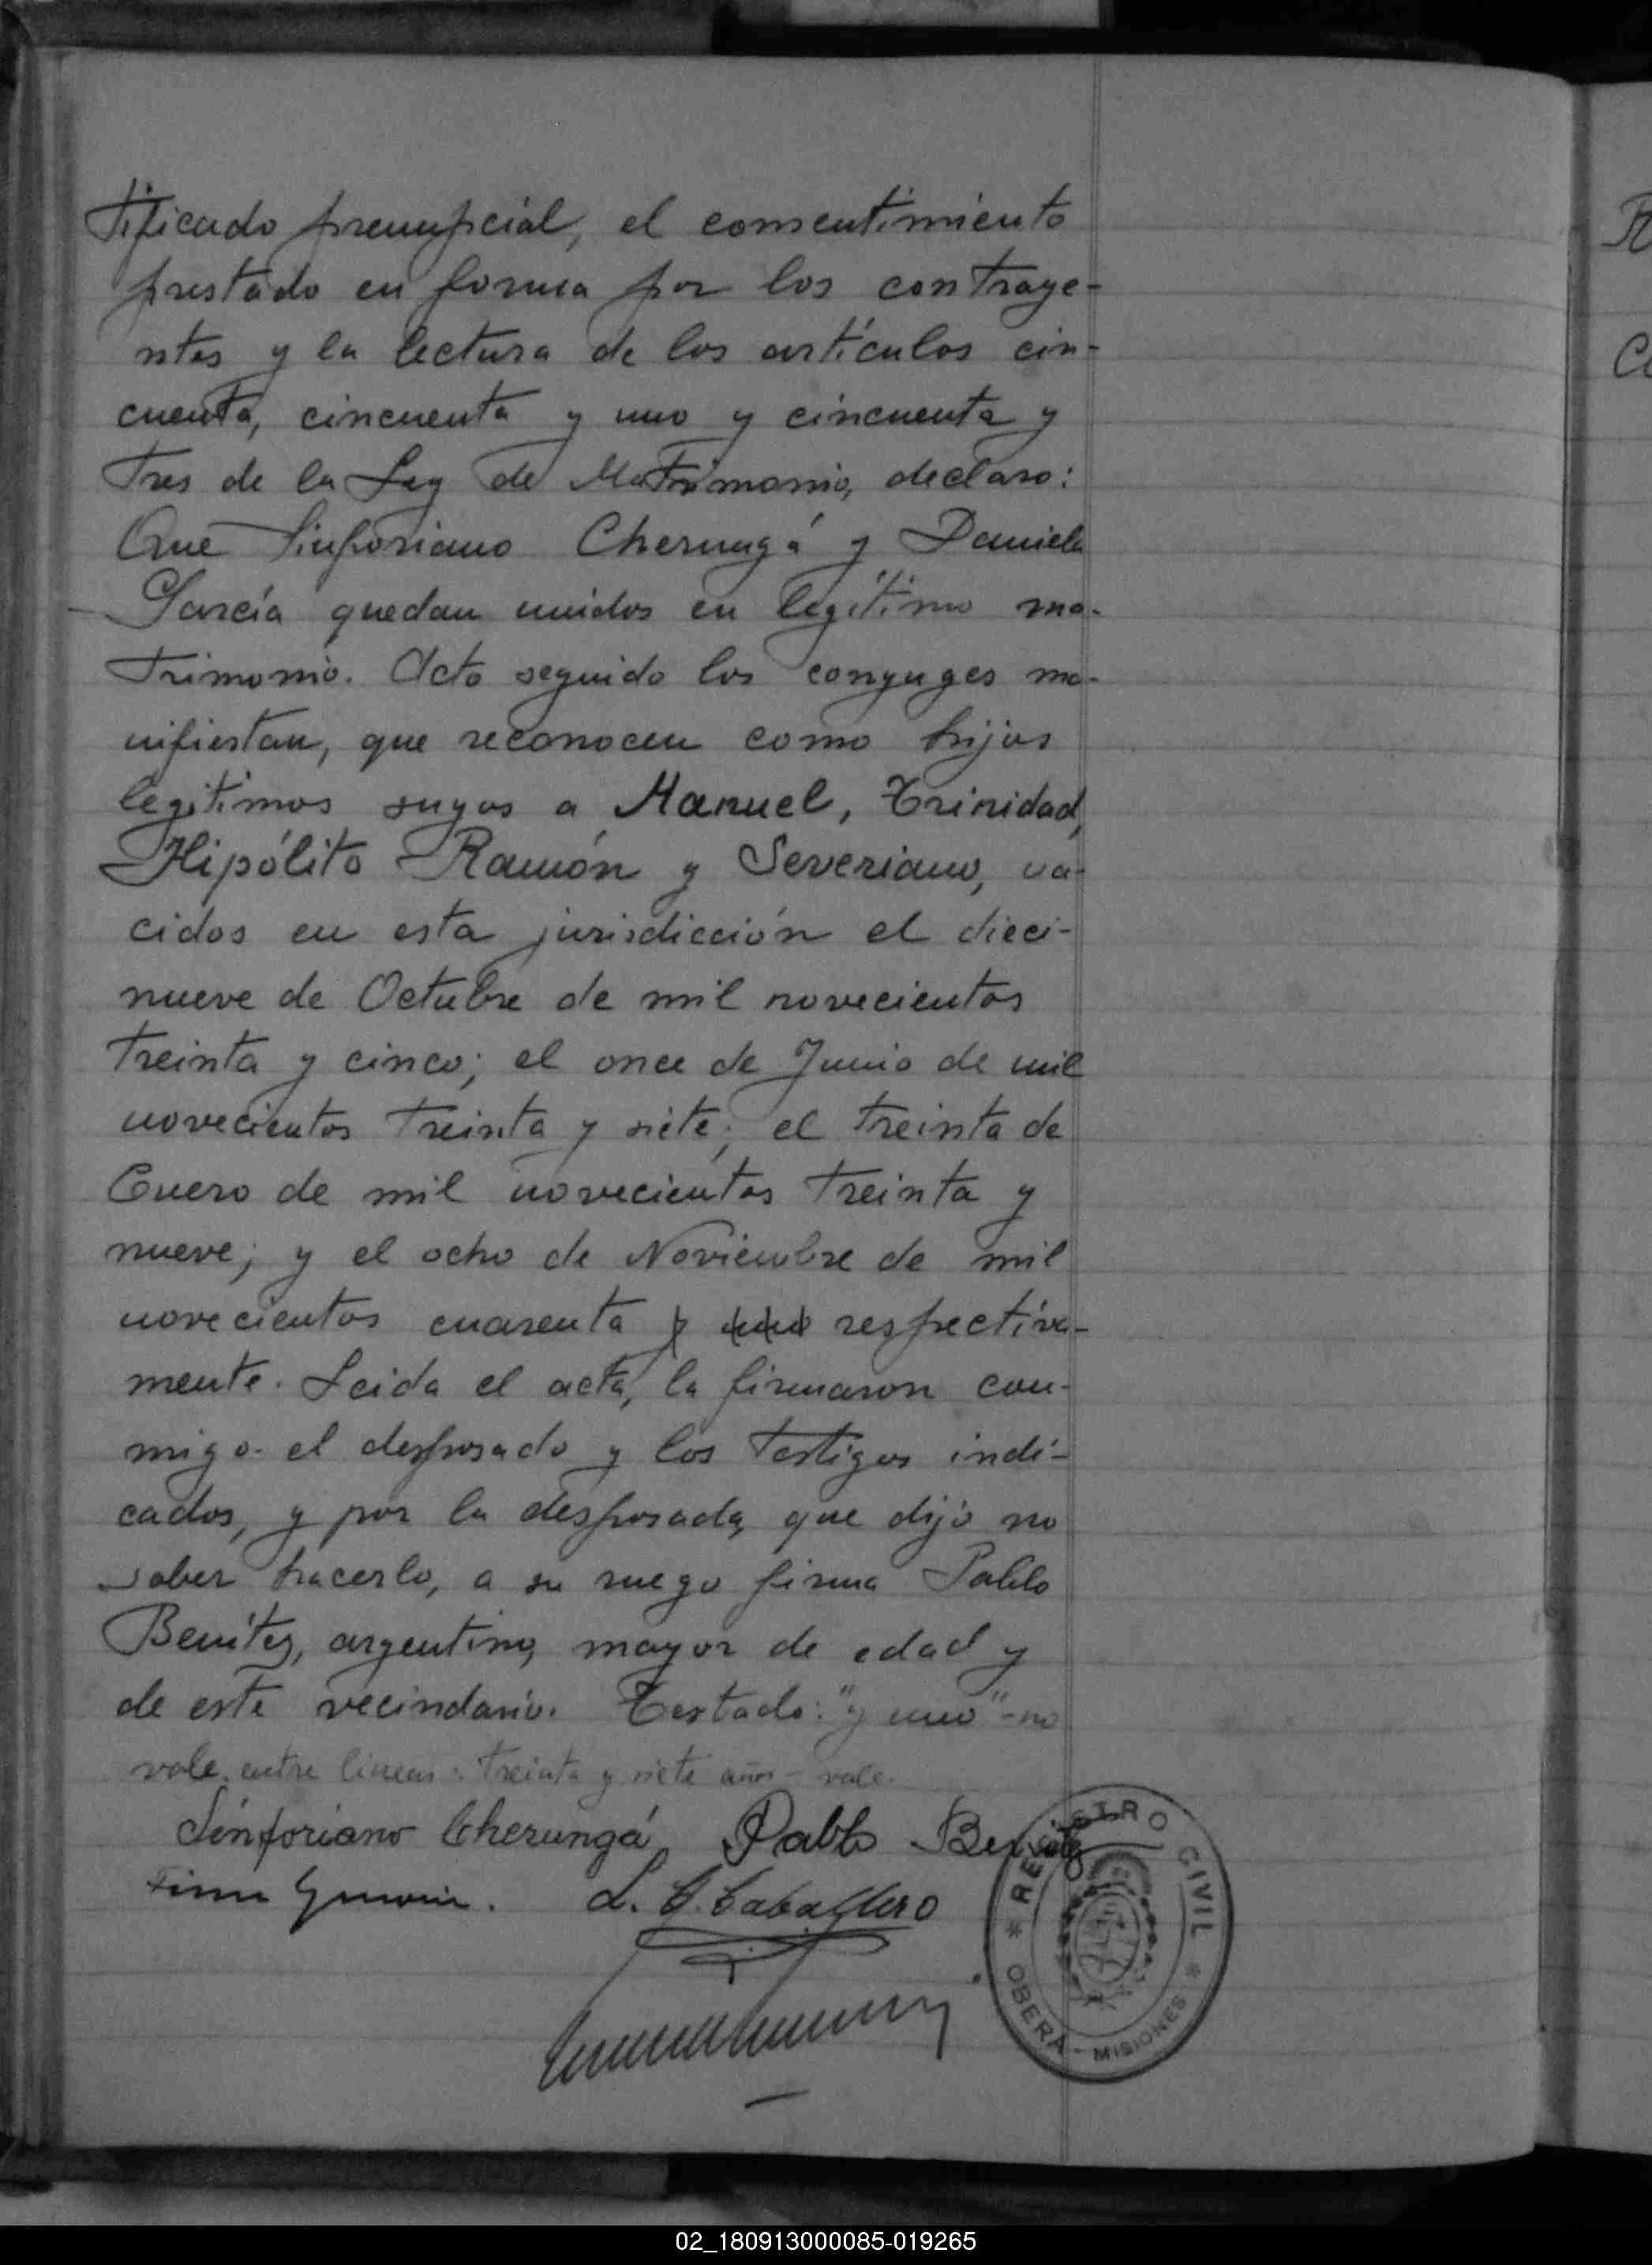 tificado prenupcial, el consentimiento
prestado en forma por los contraye-
ntes y la lectura de los artículos cin-
cuenta, cincuenta y uno y cincuenta y
tres de la Ley de Matrimonio, declaro:
Que Sinforiano Cherungá y Daniela
García quedan unidos en legítimo ma-
trimonio. Acto seguido los conyuges ma-
nifiestan, que reconocen como hijos
legitimos suyos a Manuel, Trinidad,
Hipólito Ramón y Severiano, na-
cidos en esta jurisdicción el dieci-
nueve de Octubre de mil novecientos
treinta y cinco; el once de Junio de mil
novecientos treinta y siete; el treinta de
Enero de mil novecientos treinta y
nueve; y el ocho de Noviembre de mil
novecientos cuarenta y uno respectiva-
mente. Leida el acta, la firmaron con-
migo el desposado y los testigos indi-
cados, y por la desposada, que dijo no
saber hacerlo, a su ruego firma Pablo
Benítez, argentino, mayor de edad y
de este vecindario. Testado: "y uno" - no
vale. entre lineas: treinta y siete años - vale.
Sinforiano Cherungá Pablo Benitez
L. C. Caballero
REGISTRO CIVIL
OBERÁ - MISIONES
R
C
02_180913000085-019265